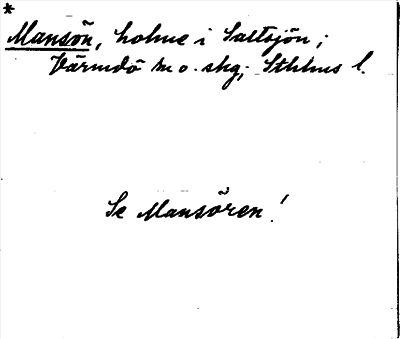 *
Mansön, holme i Saltsjön,
Värmdö m o. skg; Sthlms l.
Se Mansören!